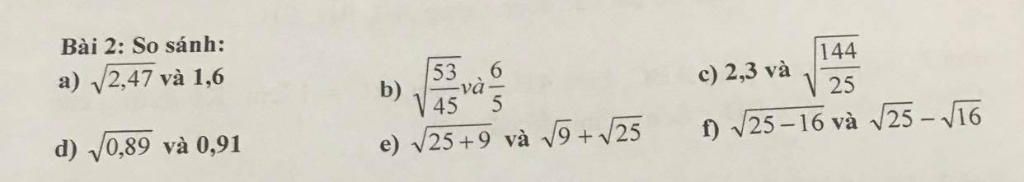 Bài 2: So sánh:
a) √2,47 và 1,6 b) √(53/45) và 6/5 c) 2,3 và √(144/25)
d) √0,89 và 0,91 e) √(25+9) và √9 + √25 f) √(25−16) và √25 − √16